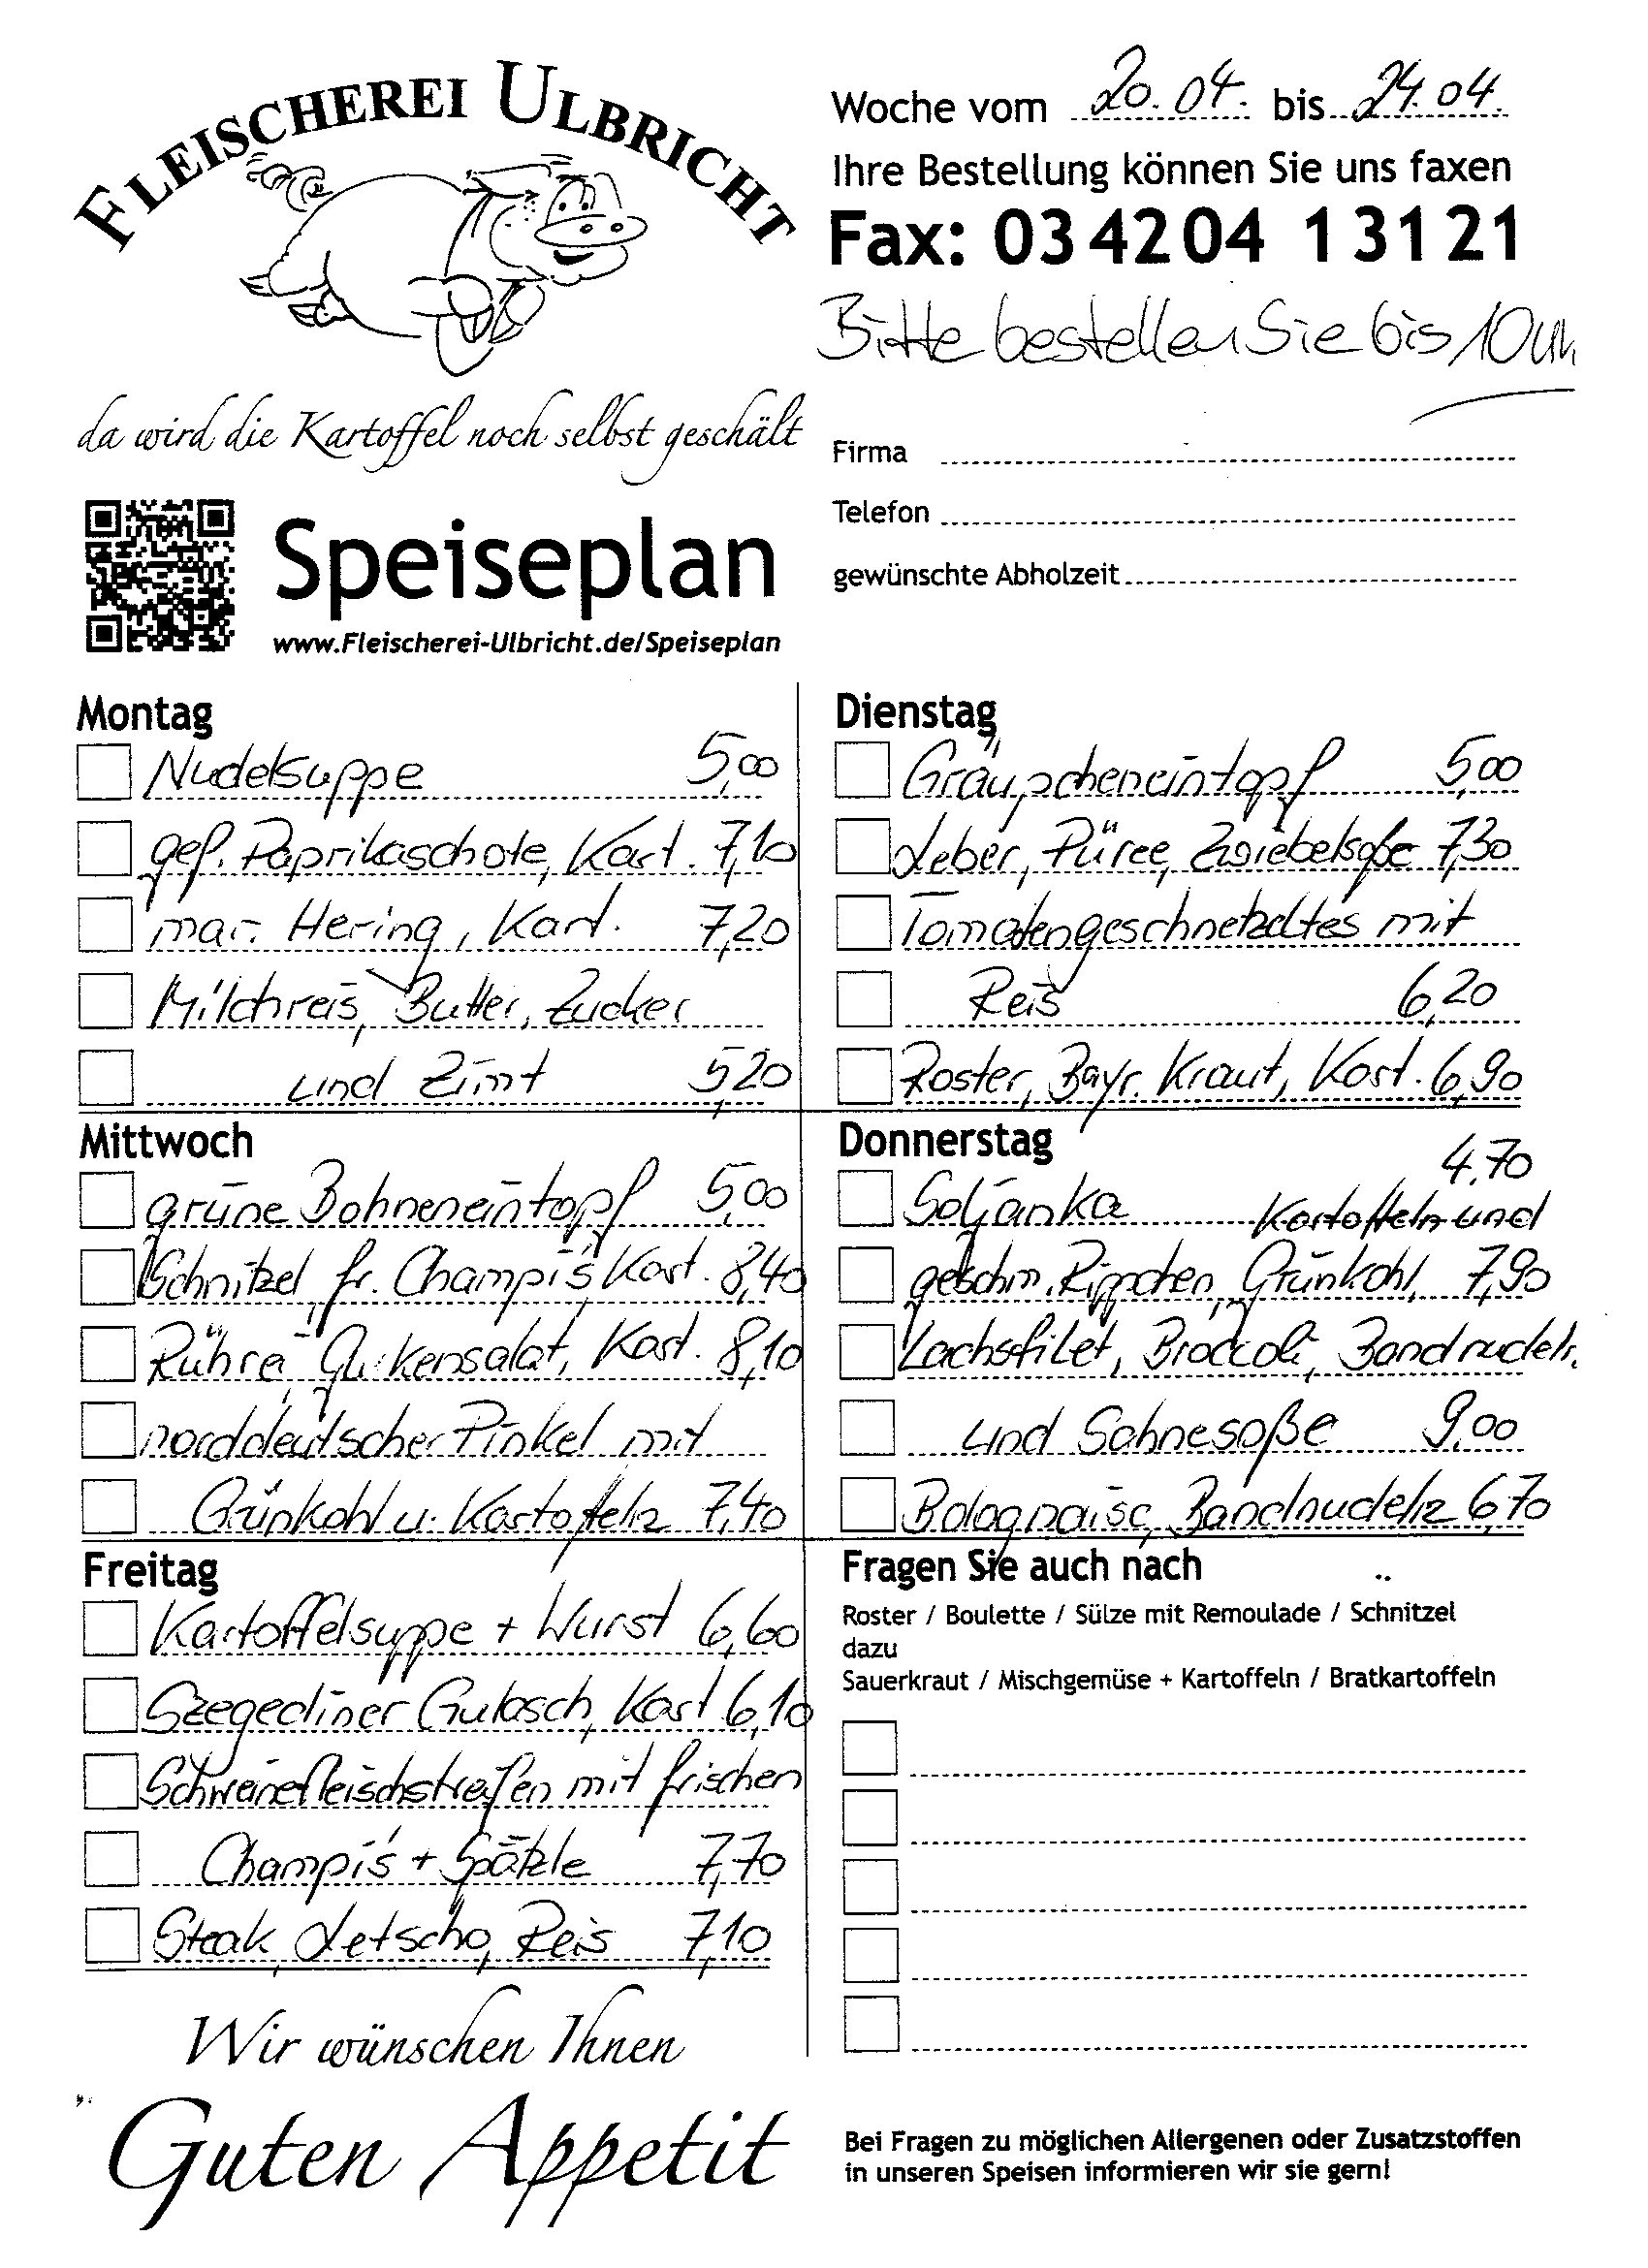 FLEISCHEREI ULBRICHT
da wird die Kartoffel noch selbst geschält
Speiseplan
www.Fleischerei-Ulbricht.de/Speiseplan
Woche vom 20.04. bis 24.04.
Ihre Bestellung können Sie uns faxen
Fax: 034204 13121
Bitte bestellen Sie bis 10 Uh.
Firma
Telefon
gewünschte Abholzeit
Montag
Nudelsuppe 5,00
gef. Paprikaschote, Kart. 7,10
mar. Hering, Kart. 7,20
Milchreis, Butter, Zucker
und Zimt 5,20
Dienstag
Gräupcheneintopf 5,00
Leber, Püree, Zwiebelsoße 7,30
Tomatengeschnetzeltes mit
Reis 6,20
Roster, Bayr. Kraut, Kart. 6,90
Mittwoch
grüne Bohneneintopf 5,00
Schnitzel, fr. Champi's, Kart. 8,40
Rührei, Gurkensalat, Kart. 8,10
norddeutscher Pinkel mit
Grünkohl u. Kartoffeln 7,40
Donnerstag
4,70
Soljanka Kartoffeln und
geschm. Rippchen, Grünkohl, 7,90
Lachsfilet, Broccoli, Bandnudeln,
und Sahnesoße 9,00
Bolognaise, Bandnudeln 6,70
Freitag
Kartoffelsuppe + Wurst 6,60
Szegediner Gulasch, Kart 6,10
Schweinefleischstreifen mit frischen
Champi's + Spätzle 7,70
Steak, Letscho, Reis 7,10
Fragen Sie auch nach
Roster / Boulette / Sülze mit Remoulade / Schnitzel
dazu
Sauerkraut / Mischgemüse + Kartoffeln / Bratkartoffeln
Wir wünschen Ihnen
Guten Appetit
Bei Fragen zu möglichen Allergenen oder Zusatzstoffen
in unseren Speisen informieren wir sie gern!